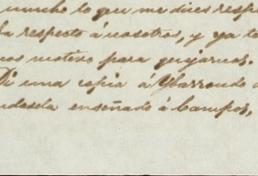 mucho lo que me dices resp
la respecto á nosotros, y ya te
mos motivo para quejarnos.
Di una copia á Ybarrondo
enseñado á Campos,